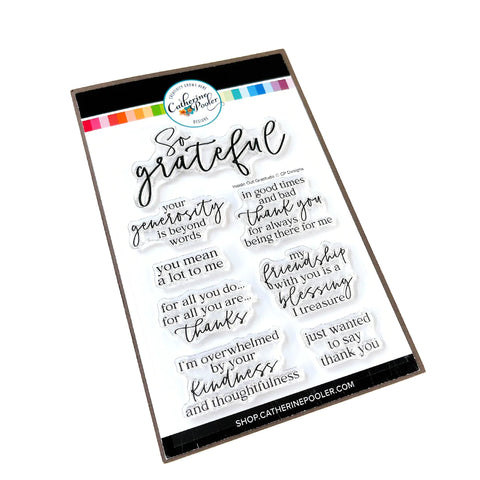 CREATIVITY GROWS HERE
Catherine
Pooler
DESIGNS
So
grateful
Habbi Out Gratitude © CP Designs
your
generosity
is beyond
words
in good times
and bad
thank you
for always
being there for me
you mean
a lot to me
my
friendship
with you is a
blessing
I treasure
for all you do...
for all you are...
thanks
I'm overwhelmed
by your
kindness
and thoughtfulness
just wanted
to say
thank you
SHOP.CATHERINEPOOLER.COM